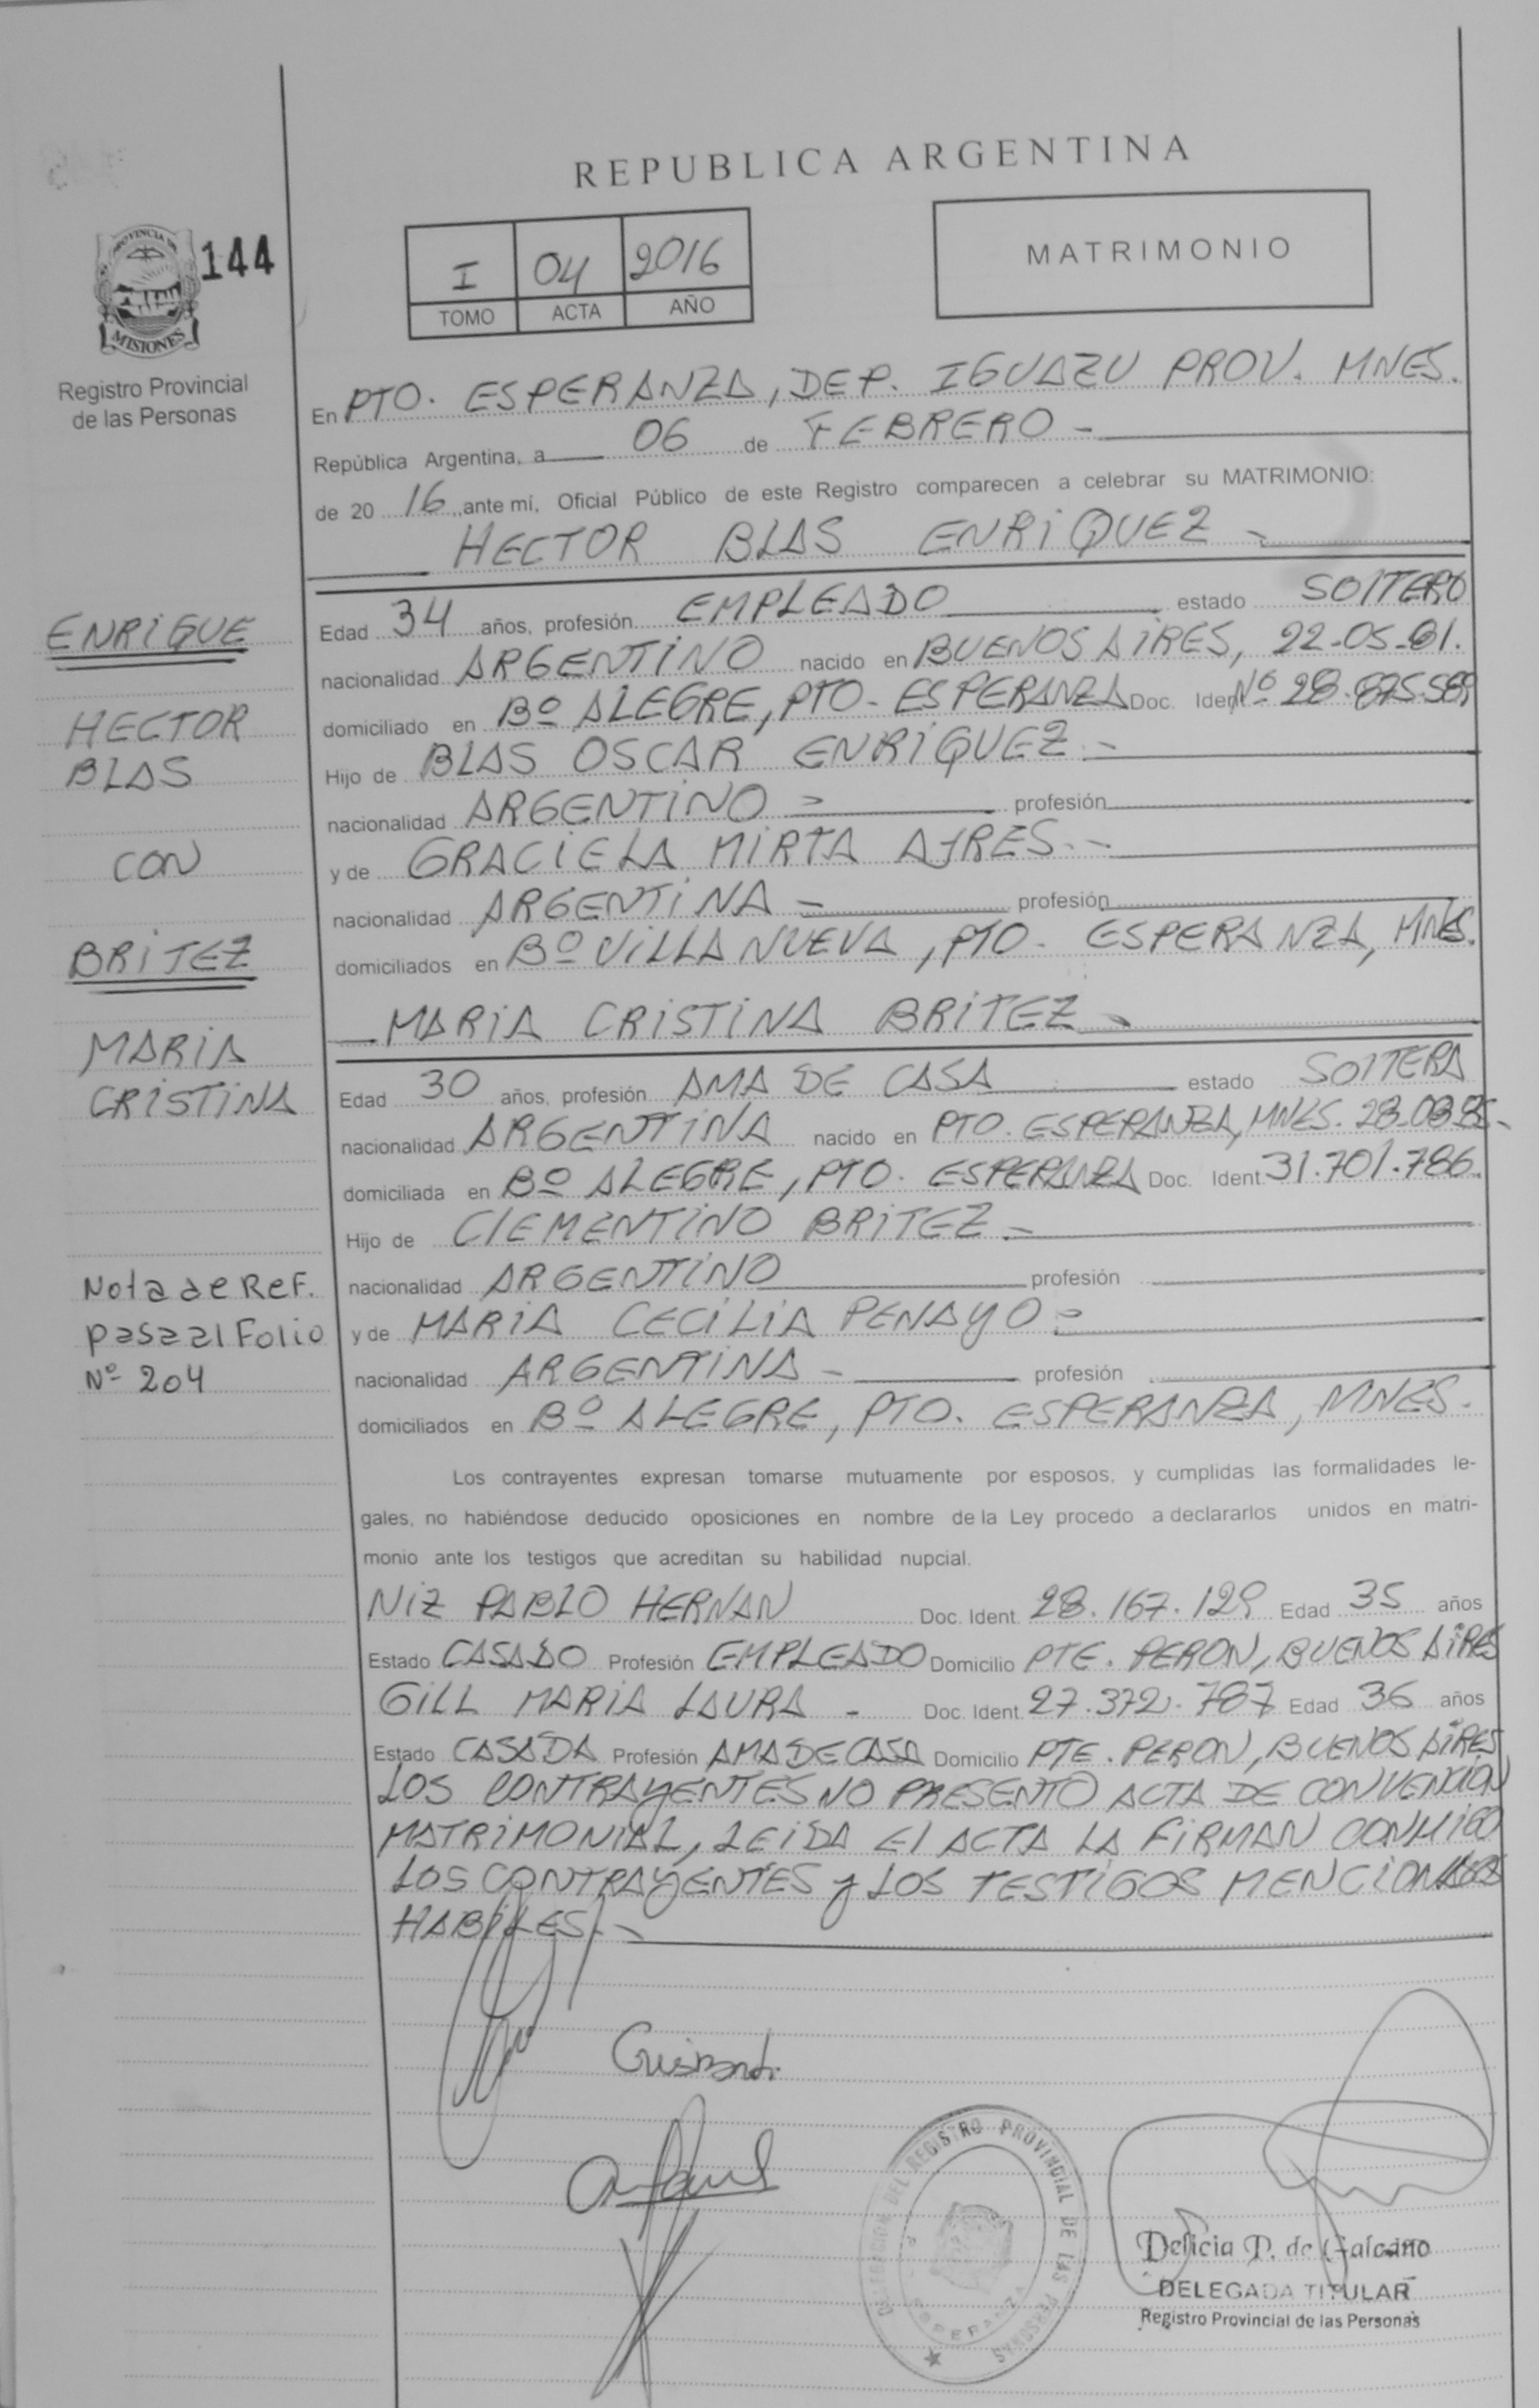 REPUBLICA ARGENTINA
PROVINCIA DE
MISIONES
144
Registro Provincial
de las Personas
I 04 2016
TOMO ACTA AÑO
MATRIMONIO
En PTO. ESPERANZA, DEP. IGUAZU PROV. MNES.
República Argentina, a 06 de FEBRERO -
de 20 16 ante mí, Oficial Público de este Registro comparecen a celebrar su MATRIMONIO:
HECTOR BLAS ENRIQUEZ -
Edad 34 años, profesión EMPLEADO estado SOLTERO
nacionalidad ARGENTINO nacido en BUENOS AIRES, 22-05-81.
domiciliado en Bº ALEGRE, PTO. ESPERANZA Doc. Ident Nº 28.875.589
Hijo de BLAS OSCAR ENRIQUEZ -
nacionalidad ARGENTINO - profesión
y de GRACIELA MIRTA AYRES. -
nacionalidad ARGENTINA - profesión
domiciliados en Bº VILLA NUEVA, PTO. ESPERANZA, MNES.
MARIA CRISTINA BRITEZ -
Edad 30 años, profesión AMA DE CASA estado SOLTERA
nacionalidad ARGENTINA nacido en PTO. ESPERANZA, MNES.
domiciliada en Bº ALEGRE, PTO. ESPERANZA Doc. Ident 31.701.786.
Hijo de CLEMENTINO BRITEZ -
nacionalidad ARGENTINO profesión
y de MARIA CECILIA PENAYO -
nacionalidad ARGENTINA - profesión
domiciliados en Bº ALEGRE, PTO. ESPERANZA, MNES.
Los contrayentes expresan tomarse mutuamente por esposos, y cumplidas las formalidades le-
gales, no habiéndose deducido oposiciones en nombre de la Ley procedo a declararlos unidos en matri-
monio ante los testigos que acreditan su habilidad nupcial.
NIZ PABLO HERNAN Doc. Ident. 28.167.129 Edad 35 años
Estado CASADO Profesión EMPLEADO Domicilio PTE. PERON, BUENOS AIRES
GILL MARIA LAURA - Doc. Ident. 27.372.787 Edad 36 años
Estado CASADA Profesión AMA DE CASA Domicilio PTE. PERON, BUENOS AIRES
LOS CONTRAYENTES NO PRESENTO ACTA DE CONVENCION
MATRIMONIAL, LEIDA El ACTA LA FIRMAN CONMIGO
LOS CONTRAYENTES y LOS TESTIGOS MENCIONADOS
HABILES. -
ENRIQUE
HECTOR
BLAS
CON
BRITEZ
MARIA
CRISTINA
Nota de Ref.
pasa al Folio
Nº 204
DELEGACION DEL REGISTRO PROVINCIAL DE LAS PERSONAS
ESPERANZA
Delicia P. de Galeano
DELEGADA TITULAR
Registro Provincial de las Personas